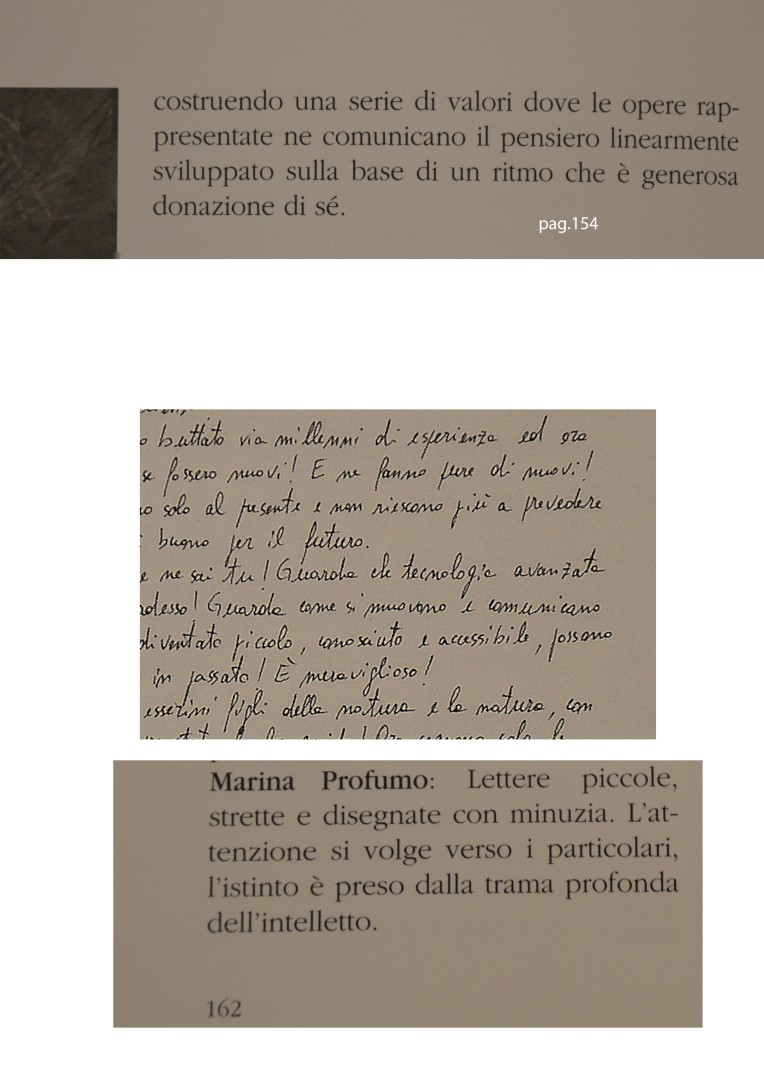 costruendo una serie di valori dove le opere rap-
presentate ne comunicano il pensiero linearmente
sviluppato sulla base di un ritmo che è generosa
donazione di sé.
pag.154
buttato via millenni di esperienza ed ora
se fossero nuovi! E ne fanno pure di nuovi!
solo al presente e non riescono più a prevedere
buono per il futuro.
e ne sai tu! Guarda che tecnologia avanzata
adesso! Guarda come si muovono e comunicano
diventato piccolo, conosciuto e accessibile, possono
in passato! È meraviglioso!
esserini figli della natura e la natura, con
Marina Profumo: Lettere piccole,
strette e disegnate con minuzia. L'at-
tenzione si volge verso i particolari,
l'istinto è preso dalla trama profonda
dell'intelletto.
162